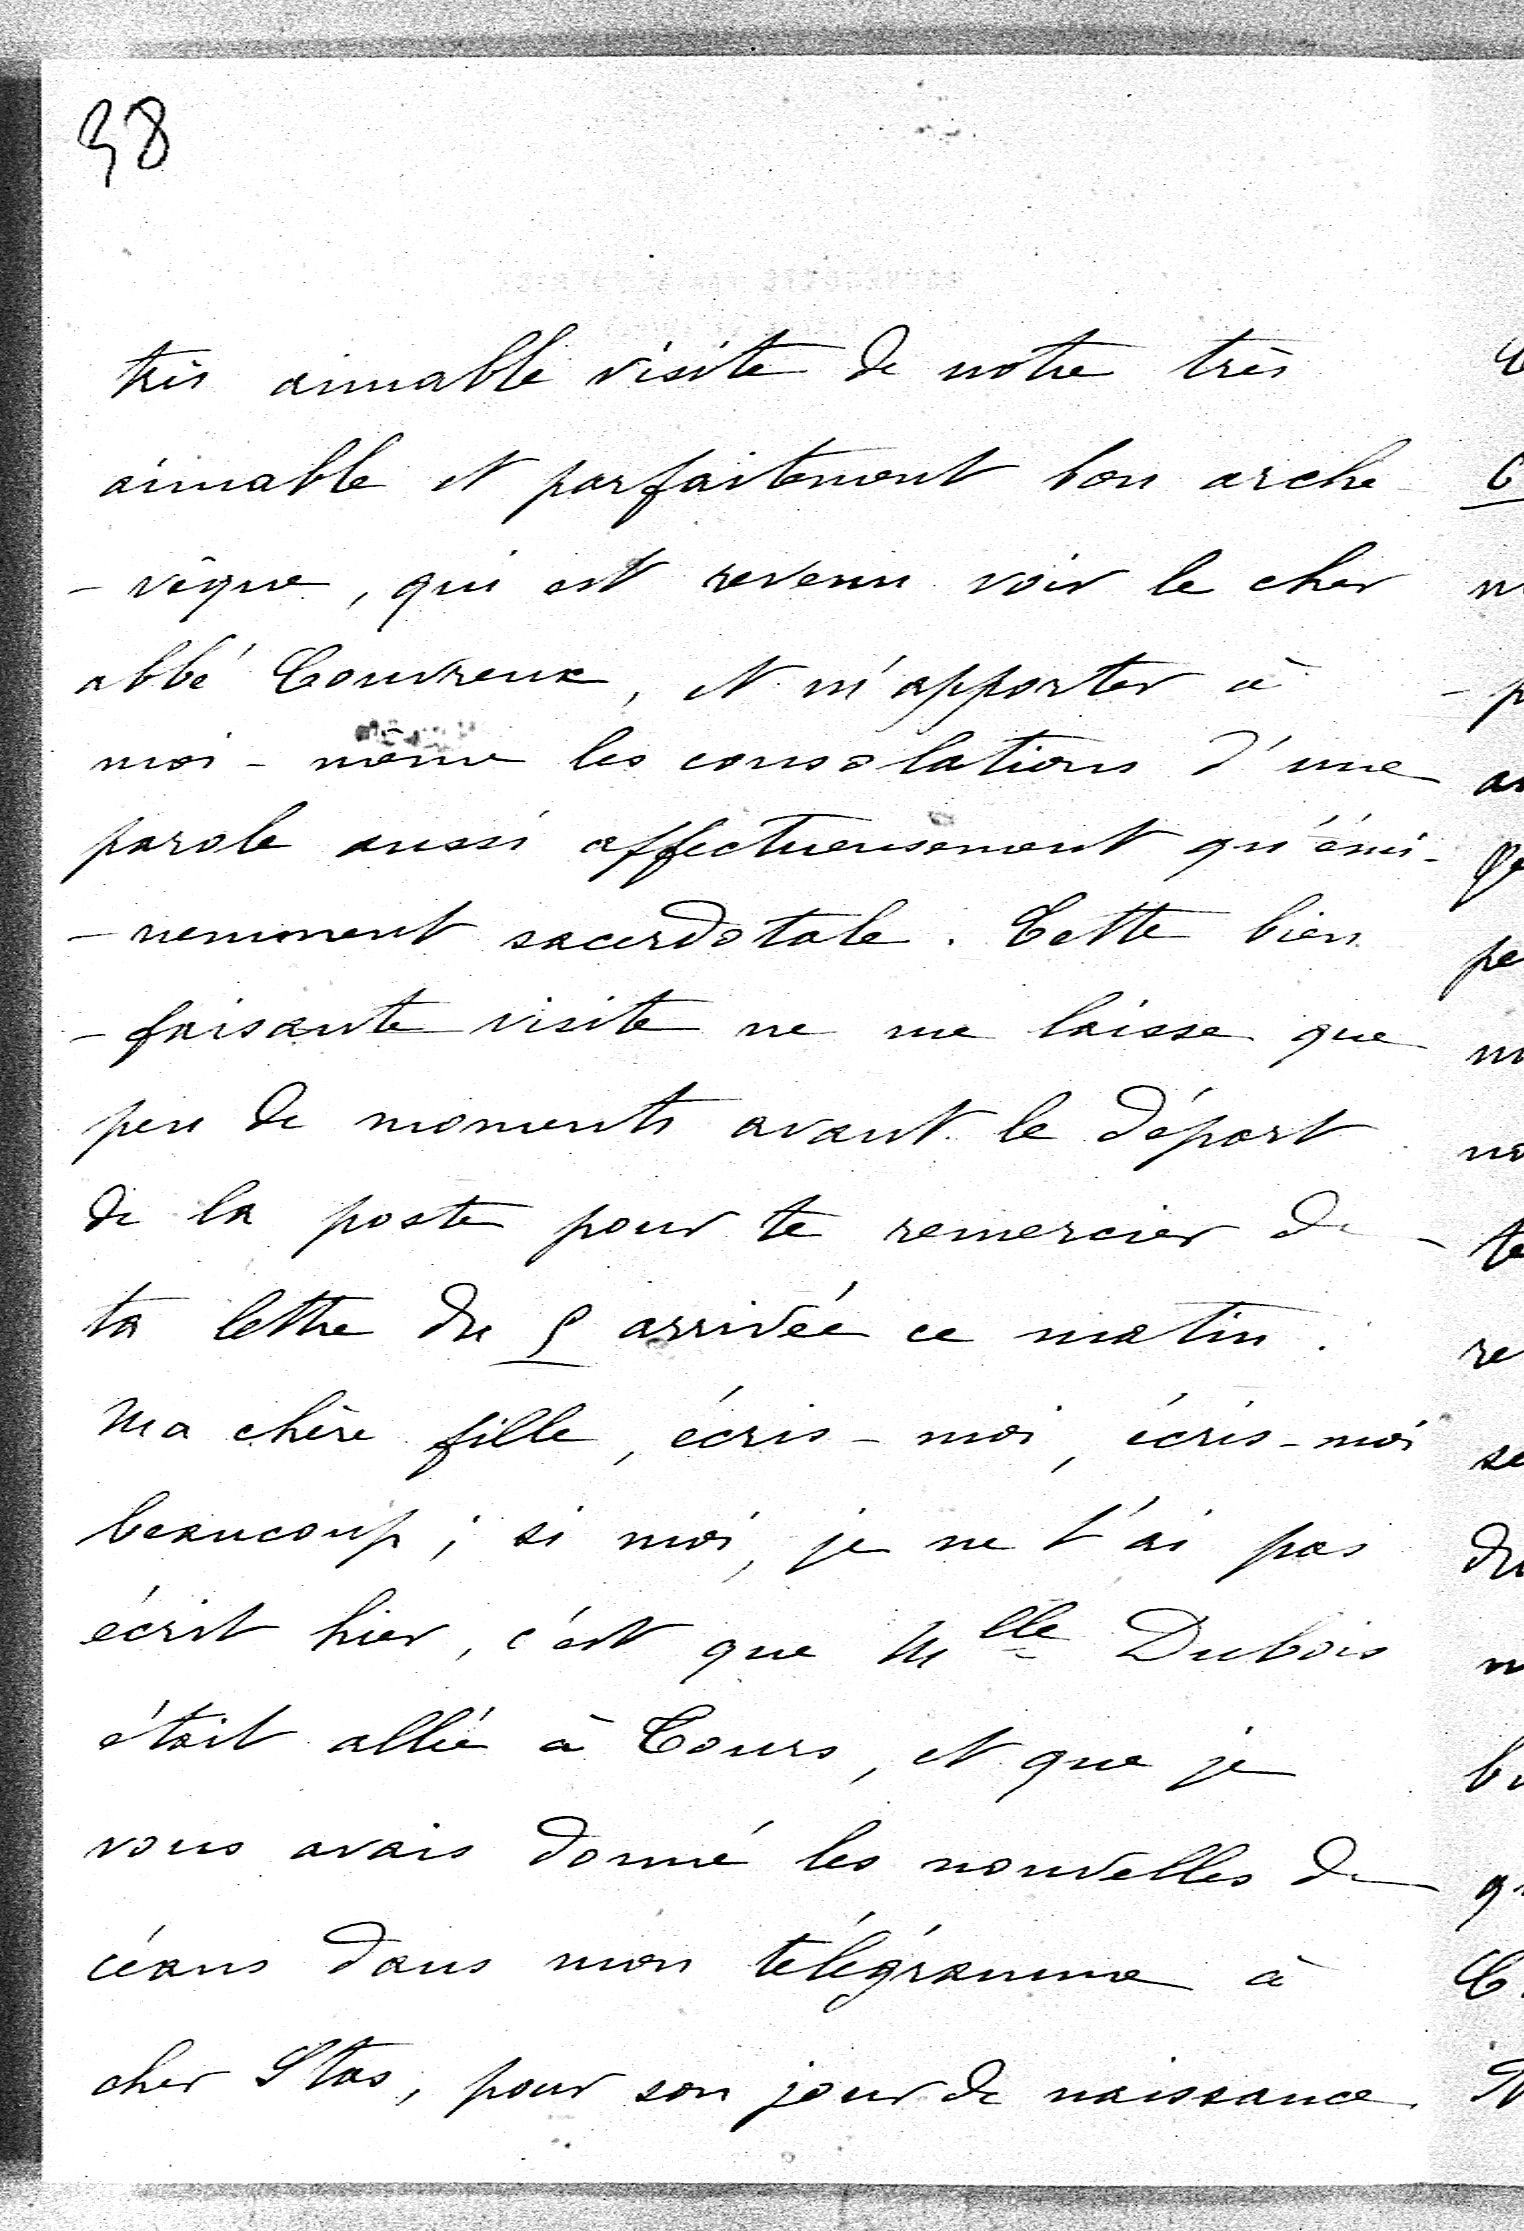 98
très aimable visite de notre très
aimable et parfaitement bon arche
- vêque, qui est revenu voir le cher
abbé Couvreux, et m'apporter à
moi-même les consolations d'une
parole aussi affectueusement qu'émi-
-nemment sacerdotale. Cette bien
-faisante visite ne me laisse que
peu de moments avant le départ
de la poste pour te remercier de
ta lettre du 5 arrivée ce matin.
Ma chère fille, écris-moi, écris-moi
beaucoup ; si moi, je ne t'ai pas
écrit hier, c'est que Mlle Dubois
était allée à Tours, et que je
vous avais donné les nouvelles de
céans dans mon télégramme à
cher Stas, pour son jour de naissance.